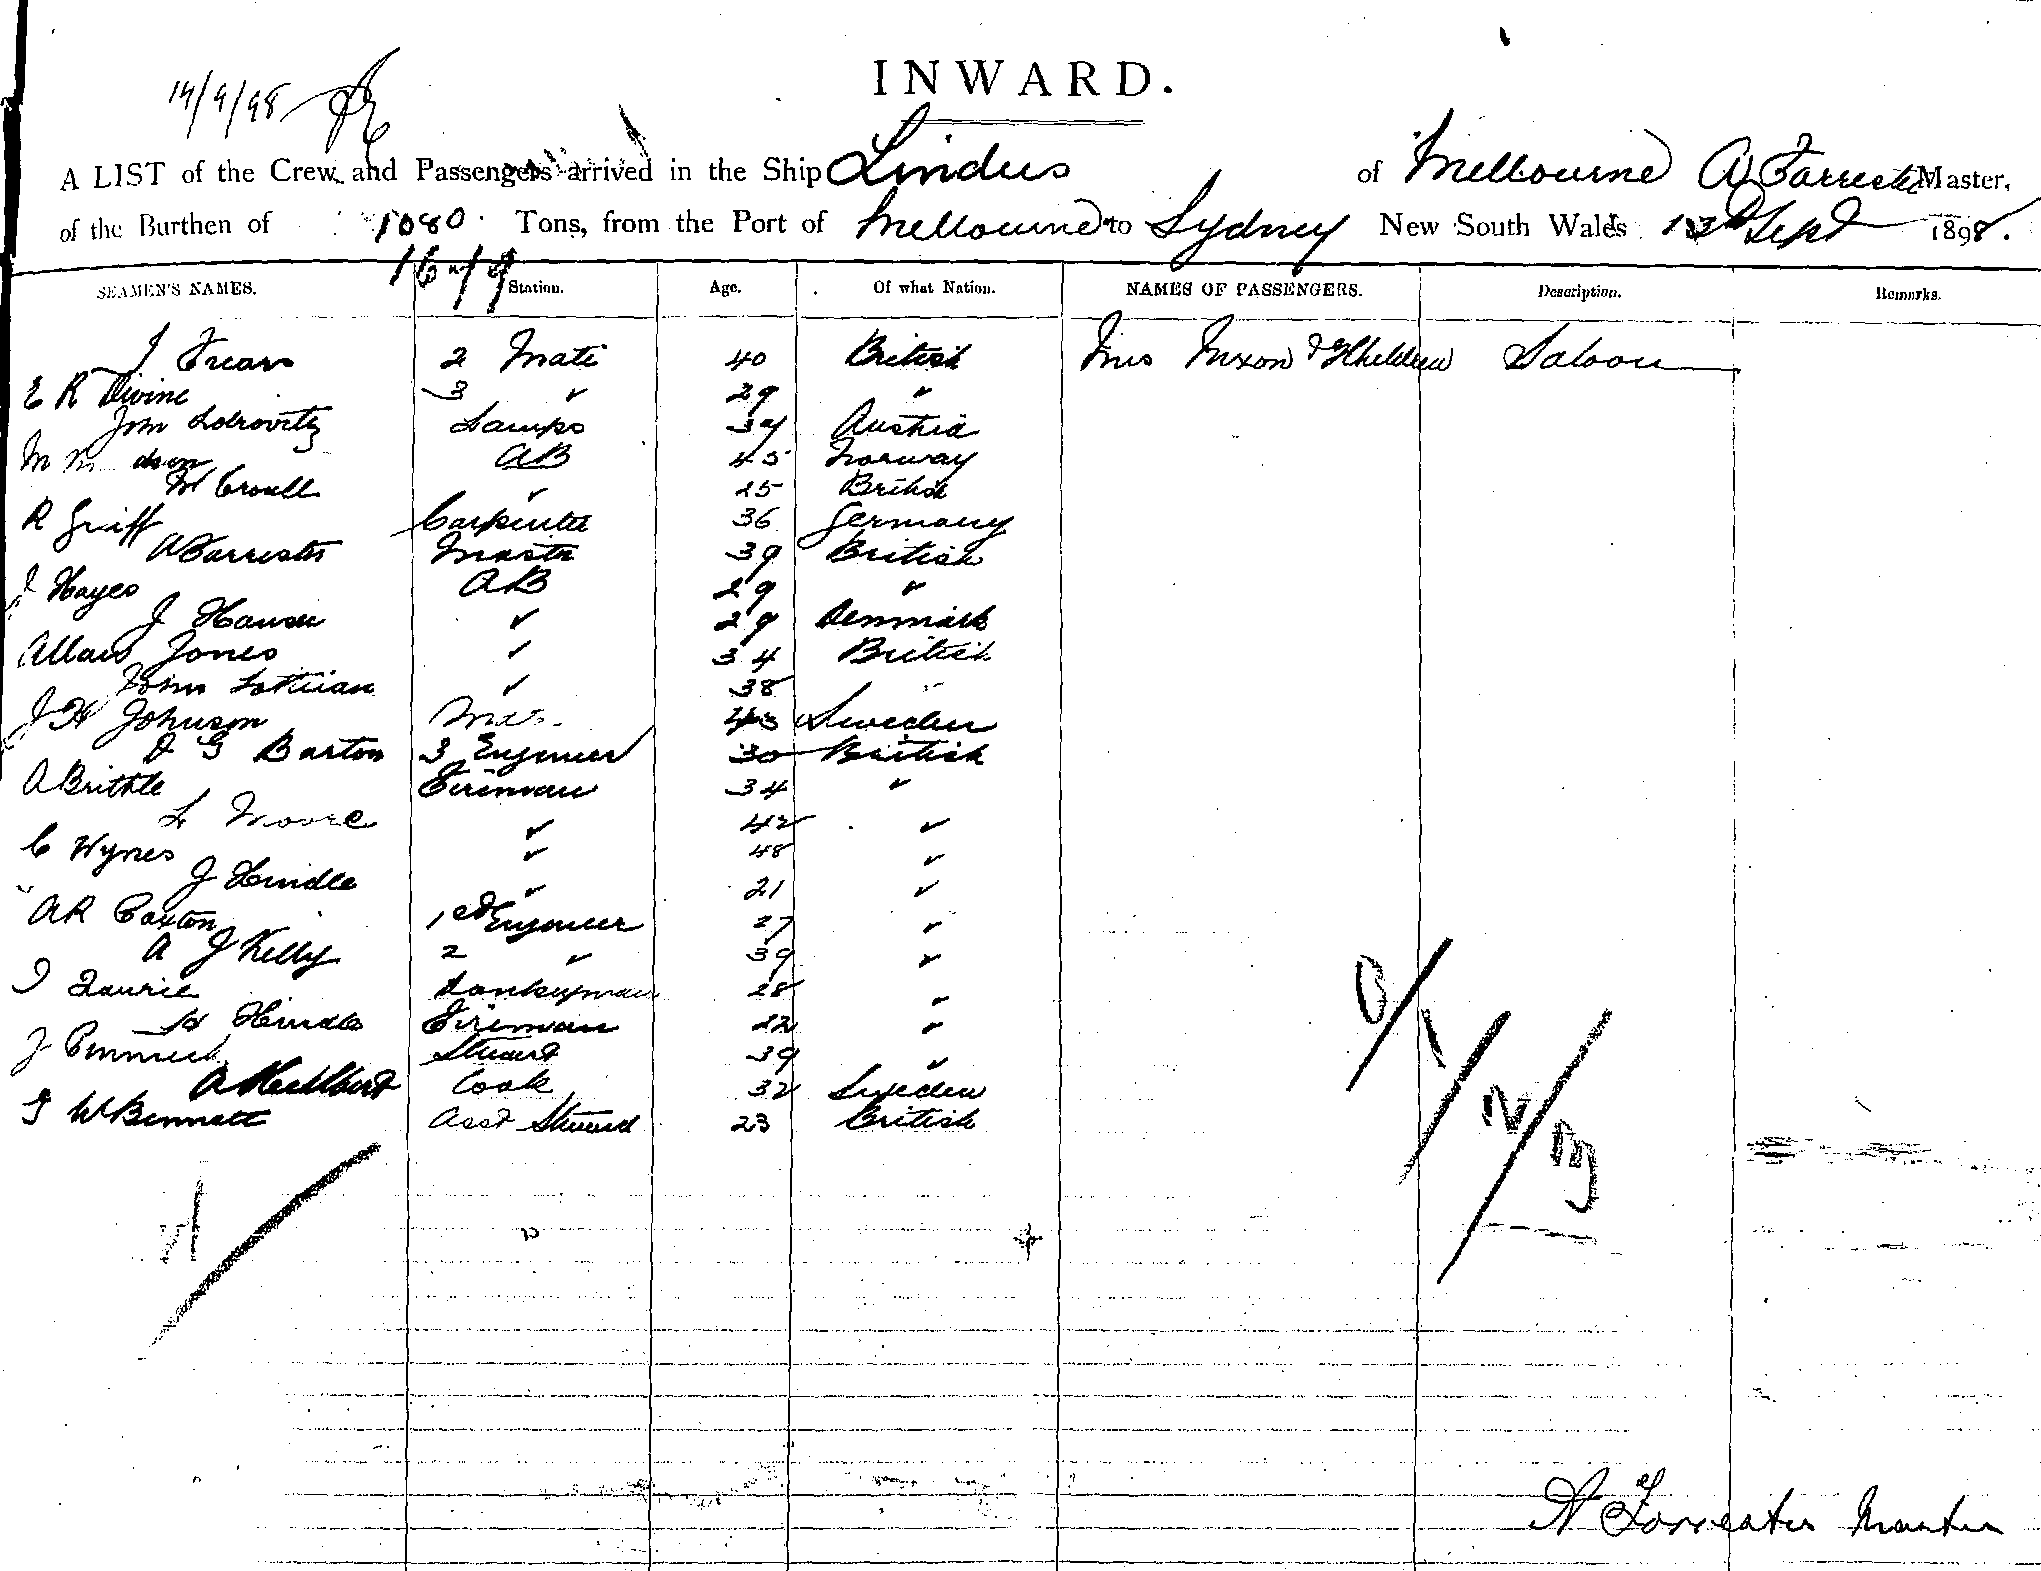 INWARD.
14/9/98
A LIST of the Crew and Passengers arrived in the Ship Lindus of Melbourne A Farrester Master,
of the Burthen of 1080 Tons, from the Port of Melbourne to Sydney New South Wales 13th Sept 1898.
SEAMEN'S NAMES. Station. Age. Of what Nation. NAMES OF PASSENGERS. Description. Remarks.
J 2 Mate 40 British Mrs Nixon & Children Saloon
E R Divine 3 " 29 "
John Lamps Austria
AB 45 Norway
" 25 British
R Greiff Carpenter 36 Germany
A Farrester Master 39 British
J Hayes AB 29 "
J Hansen " 29 Denmark
Allan Jones " 34 British
John Lothian " 38
J H Johnson Sweden
G Barton 3 Engineer 30 British
A Brittle Fireman 34 "
L Moore " 42 "
C Wynes " 48 "
J Hindle " 21 "
A R Paxton 1 Engineer 27 "
A J Kelly 2 " 39 "
Laurie Donkeyman 28 "
H Hindle Fireman 22 "
J Steward 39 "
A Cook 32 Sweden
W Bennett Asst Steward 23 British
0/1/2/3
A Forrester Master